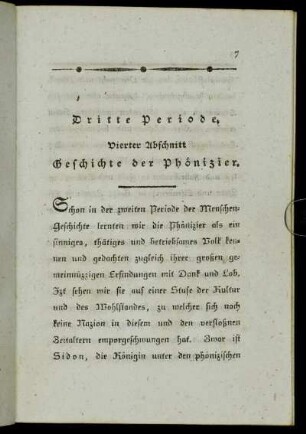 7
Dritte Periode,
Vierter Abschnitt
Geschichte der Phönizier.
Schon in der zweiten Periode der Menschen-
geschichte lernten wir die Phönizier als ein
sinniges, thätiges und betriebsames Volk ken-
nen und gedachten zugleich ihrer großen ge-
meinnüzzigen Erfindungen mit Dank und Lob.
Izt sehen wir sie auf einer Stufe der Kultur
und des Wohlstandes, zu welcher sich noch
keine Nazion in diesem und den verfloßnen
Zeitaltern emporgeschwungen hat. Zwar ist
Sidon, die Königin unter den phönizischen